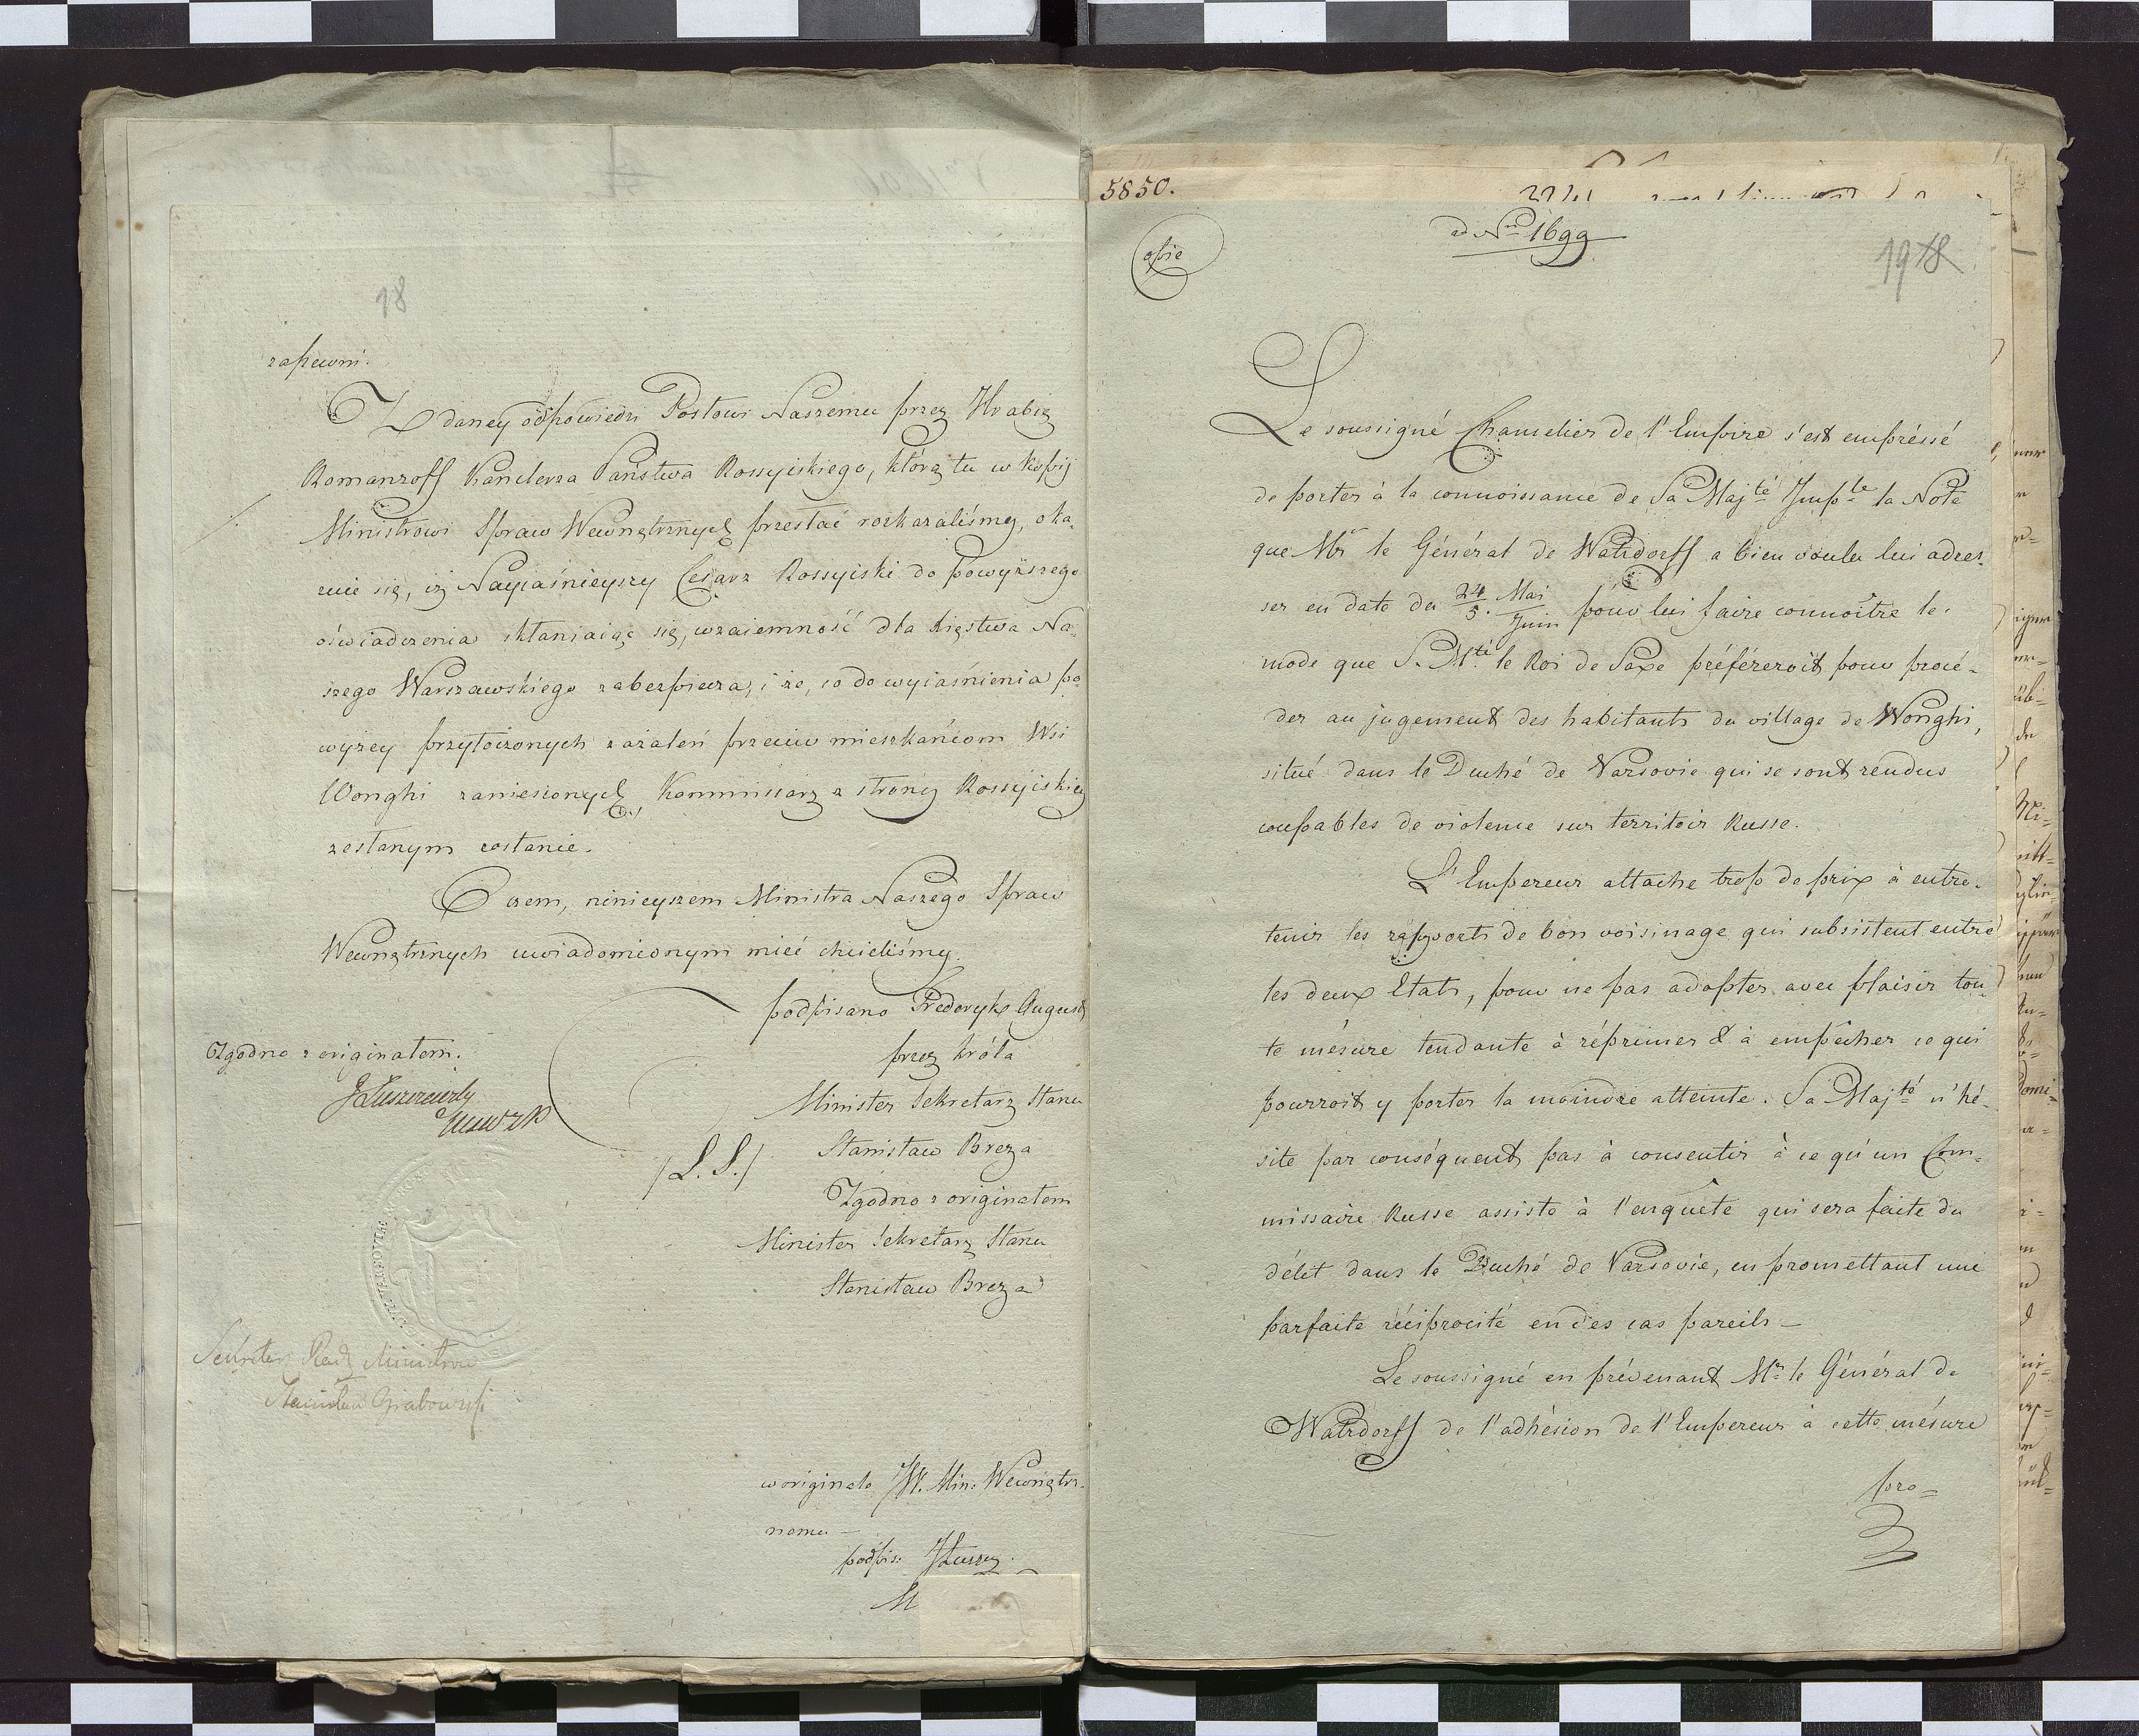 18
zapewni.
Z daney odpowiedzi Posłowi Naszemu przez Hrabię
Romanzoff Kanclerza Państwa Rossyiskiego, którą tu w kopij
Ministrowi Spraw Wewnętrznych przesłać rozkazaliśmy, oka-
zuie się, iż Nayiaśnieyszy Cesarz Rossyiski do powyższego
oświadczenia skłaniaiąc się, wzaiemność dla Xięstwa Na-
szego Warszawskiego zabezpiecza, i że, co do wyiaśnienia po-
wyżey przytoczonych zażaleń przeciw mieszkańcom Wsi
Wonghi zaniesionych, Kommissarz z strony Rossyiskiey
zesłanym zostanie.
O czem, ninieyszem Ministra Naszego Spraw
Wewnętrznych uwiadomionym mieć chcieliśmy.
podpisano Frederyk August
przez króla
Minister Sekretarz Stanu
/L.S./ Stanisław Breza
Zgodno z originałem
Minister Sekretarz Stanu
Stanisław Breza
Zgodno z originałem.
JŁuszczewsky
Sekretarz Rady Ministrów
Stanisław Grabowski
w originale JW. Min: Wewnętrz-
nemu –
podpis: JŁuszcz.
M
5850.
ad Nrum 1699
Copie
19 18
Le soussigné Chancelier de l'Empire s'est empréssé
de porter à la connoissance de Sa Majté Imple la Note
que Mr le Général de Watzdorff a bien voulu lui adres-
ser en date du 24 Mai / 5. Juin pour lui faire connoître le
mode que S. Mté le Roi de Saxe préféreroit pour procé-
der au jugement des habitants du village de Wonghi,
situé dans le Duché de Varsovie qui se sont rendus
coupables de violence sur territoir Russe.
L'Empereur attache trop de prix à entre-
tenir les rapports de bon voisinage qui subsistent entre
les deux Etats, pour ne pas adopter avec plaisir tou-
te mésure tendante à réprimer & à empêcher ce qui
pourroit y porter la moindre atteinte. Sa Majté n'hé-
site par conséquent pas à consentir à ce qu'un Com-
missaire Russe assiste à l'enquête qui sera faite du
délit dans le Duché de Varsovie, en promettant une
parfaite réciprocité en des cas pareils –
Le soussigné en prévenant Mr le Général de
Watzdorff de l'adhésion de l'Empereur à cette mésure
pro=